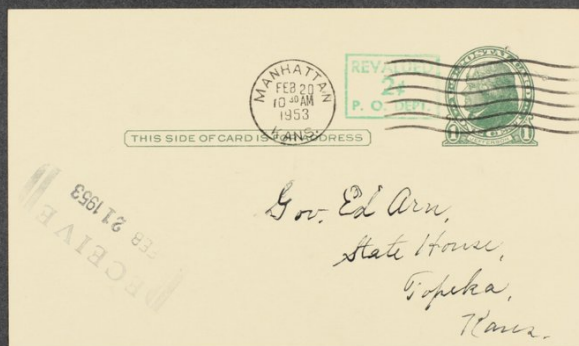 MANHATTAN
FEB 20
10 30 AM
1953
KANS.
REVALUED
2¢
P. O. DEPT.
U.S. POSTAGE
1 1
THIS SIDE OF CARD IS FOR ADDRESS
RECEIVE
FEB 21 1953
Gov. Ed Arn,
State House,
Topeka,
Kans.